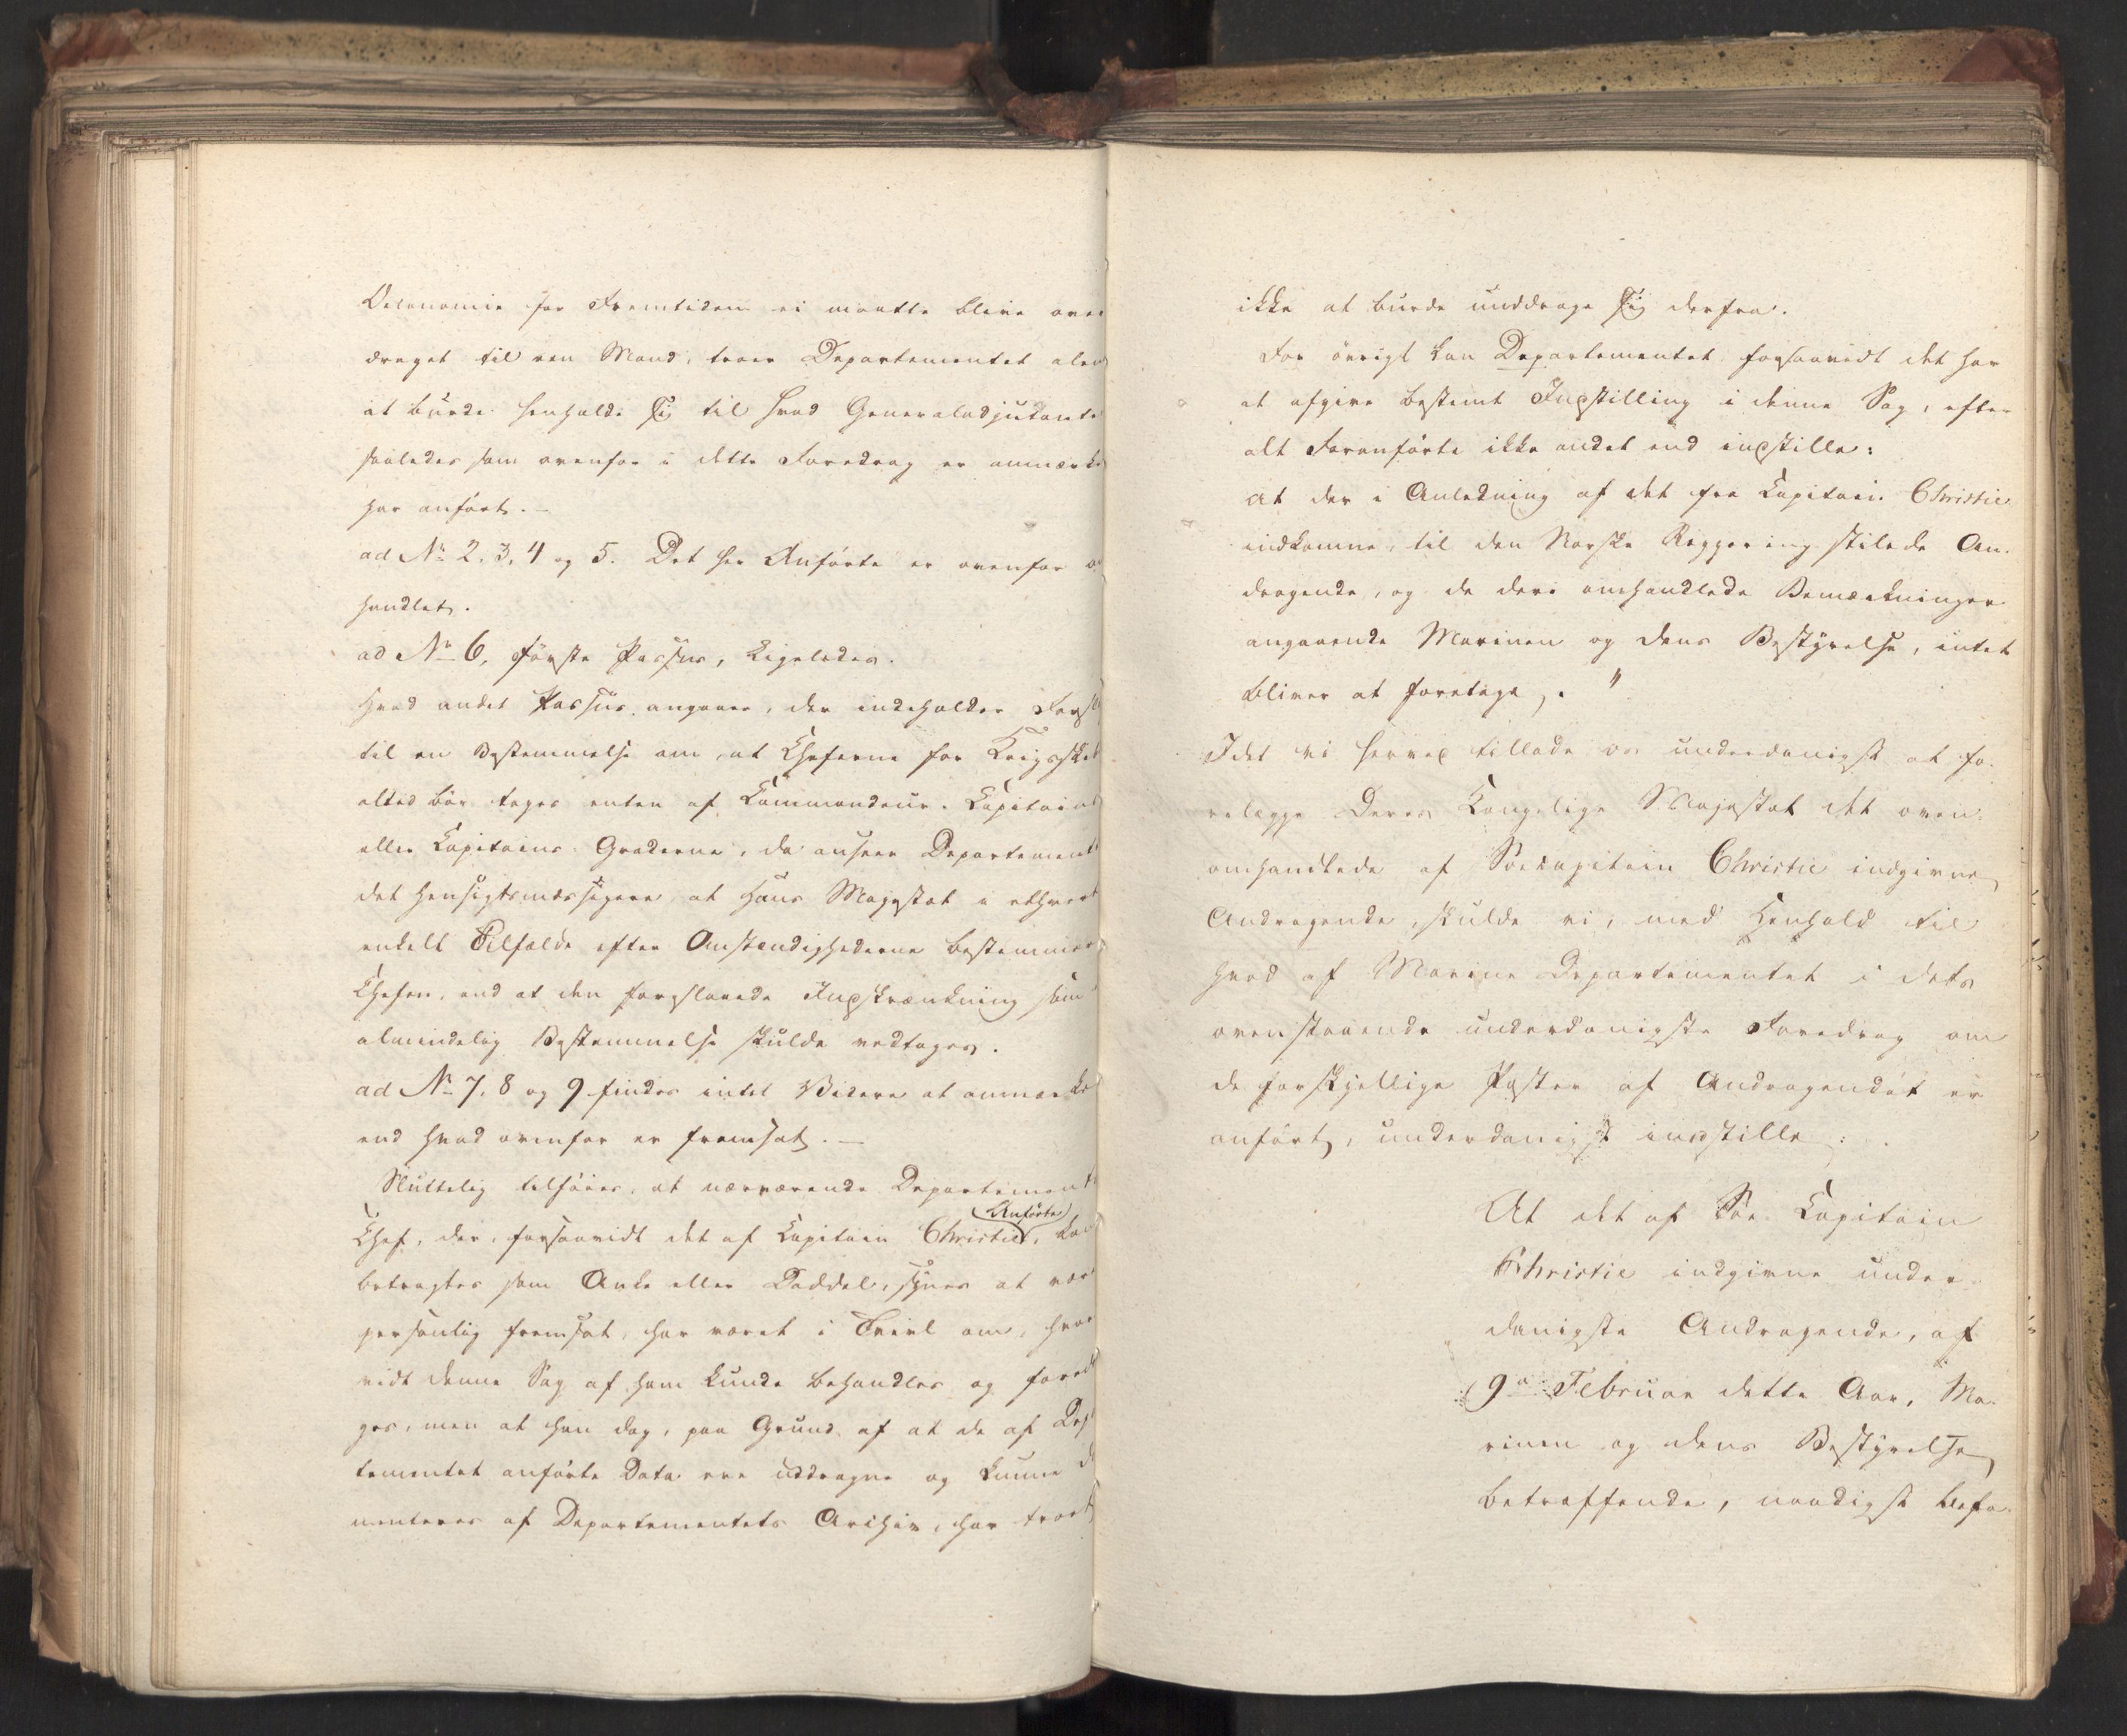 Oeconomie for Fremtiden ei maatte blive over
draget til een Mand, troer Departementet alene
at burde henholde sig til hvad Generaladjutante
saaledes som ovenfor i dette Foredrag er anmærke
har anført. –
ad No 2, 3, 4 og 5. Det her Anførte er ovenfor
handlet.
ad No 6, første Passus, Ligeledes.
Hvad andet Passus angaaer, der indeholder Forsl
til en Bestemmelse om, at Cheferne for Krigsski
altid bør tages enten af Commandeur-Capitains
eller Capitains-Graderne, da ansees Departement
det hensigtsmæssigere, at Hans Majestæt i ethvert
enkelt Tilfælde efter Omstændighederne bestemmer
Chefen, end at den foreslaaede Indskrænkning som
almindelig Bestemmelse skulde vedtages.
ad No 7, 8 og 9 findes intet Videre at anmærke
end hvad ovenfor er fremsat. –
Sluttelig tilføies, at nærværende Departement
Chef, der, forsaavidt det af Capitain Christie Anførte, kan
betragtes som Anke eller Daddel, synes at være
personlig fremsat, har været i Tvivl om, hvor
vidt denne Sag af ham kunde behandles og fored
ges, men at han dog, paa Grund af at de af Dep
tementet anførte Data ere uddragne og kunne d
menteres af Departementets Archiv, har troet
ikke at burde unddrage sig derfra.
For øvrigt kan Departementet forsaavidt det har
at afgive bestemt Indstilling i denne Sag, efter
alt Foranførte ikke andet end indstille:
at der i Anledning af det fra Capitain Christie
indkomne, til den Norske Regjering stilede An-
dragende, og de deri omhandlede Bemærkninger
angaaende Marinen og dens Bestyrelse, intet
bliver at foretage. "
Idet vi herved tillade os underdanigst at fo-
relægge Deres Kongelige Majestæt det oven-
omhandlede af Søecapitain Christie indgivne
Andragende, skulde vi, med Henhold til
hvad af Marine Departementet i dets
ovenstaaende underdanigste Foredrag om
de forskjellige Poster af Andragendet er
anført, underdanigst indstille:
At det af Søe-Capitain
Christie indgivne under-
danigste Andragende, af
9de Februar dette Aar, Ma-
rinen og dens Bestyrelse
betræffende, naadigst befa-